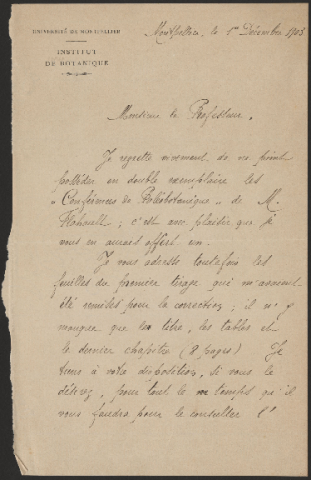 UNIVERSITÉ DE MONTPELLIER
INSTITUT
DE BOTANIQUE
Montpellier, le 1er Décembre 1903
Monsieur le Professeur,
Je regrette vivement de ne point
posséder en double exemplaire les
"Conférences de Paléobotanique" de M.
Flahault ; c'est avec plaisir que je
vous en aurais offert un.
Je vous adresse toutefois les
feuilles du premier tirage qui m'avaient
été remises pour la correction ; il n'y
manque que le titre, les tables et
le dernier chapitre (8 pages) Je
tiens à votre disposition, si vous le
désirez, pour tout le temps qu'il
vous faudra pour le consulter l'